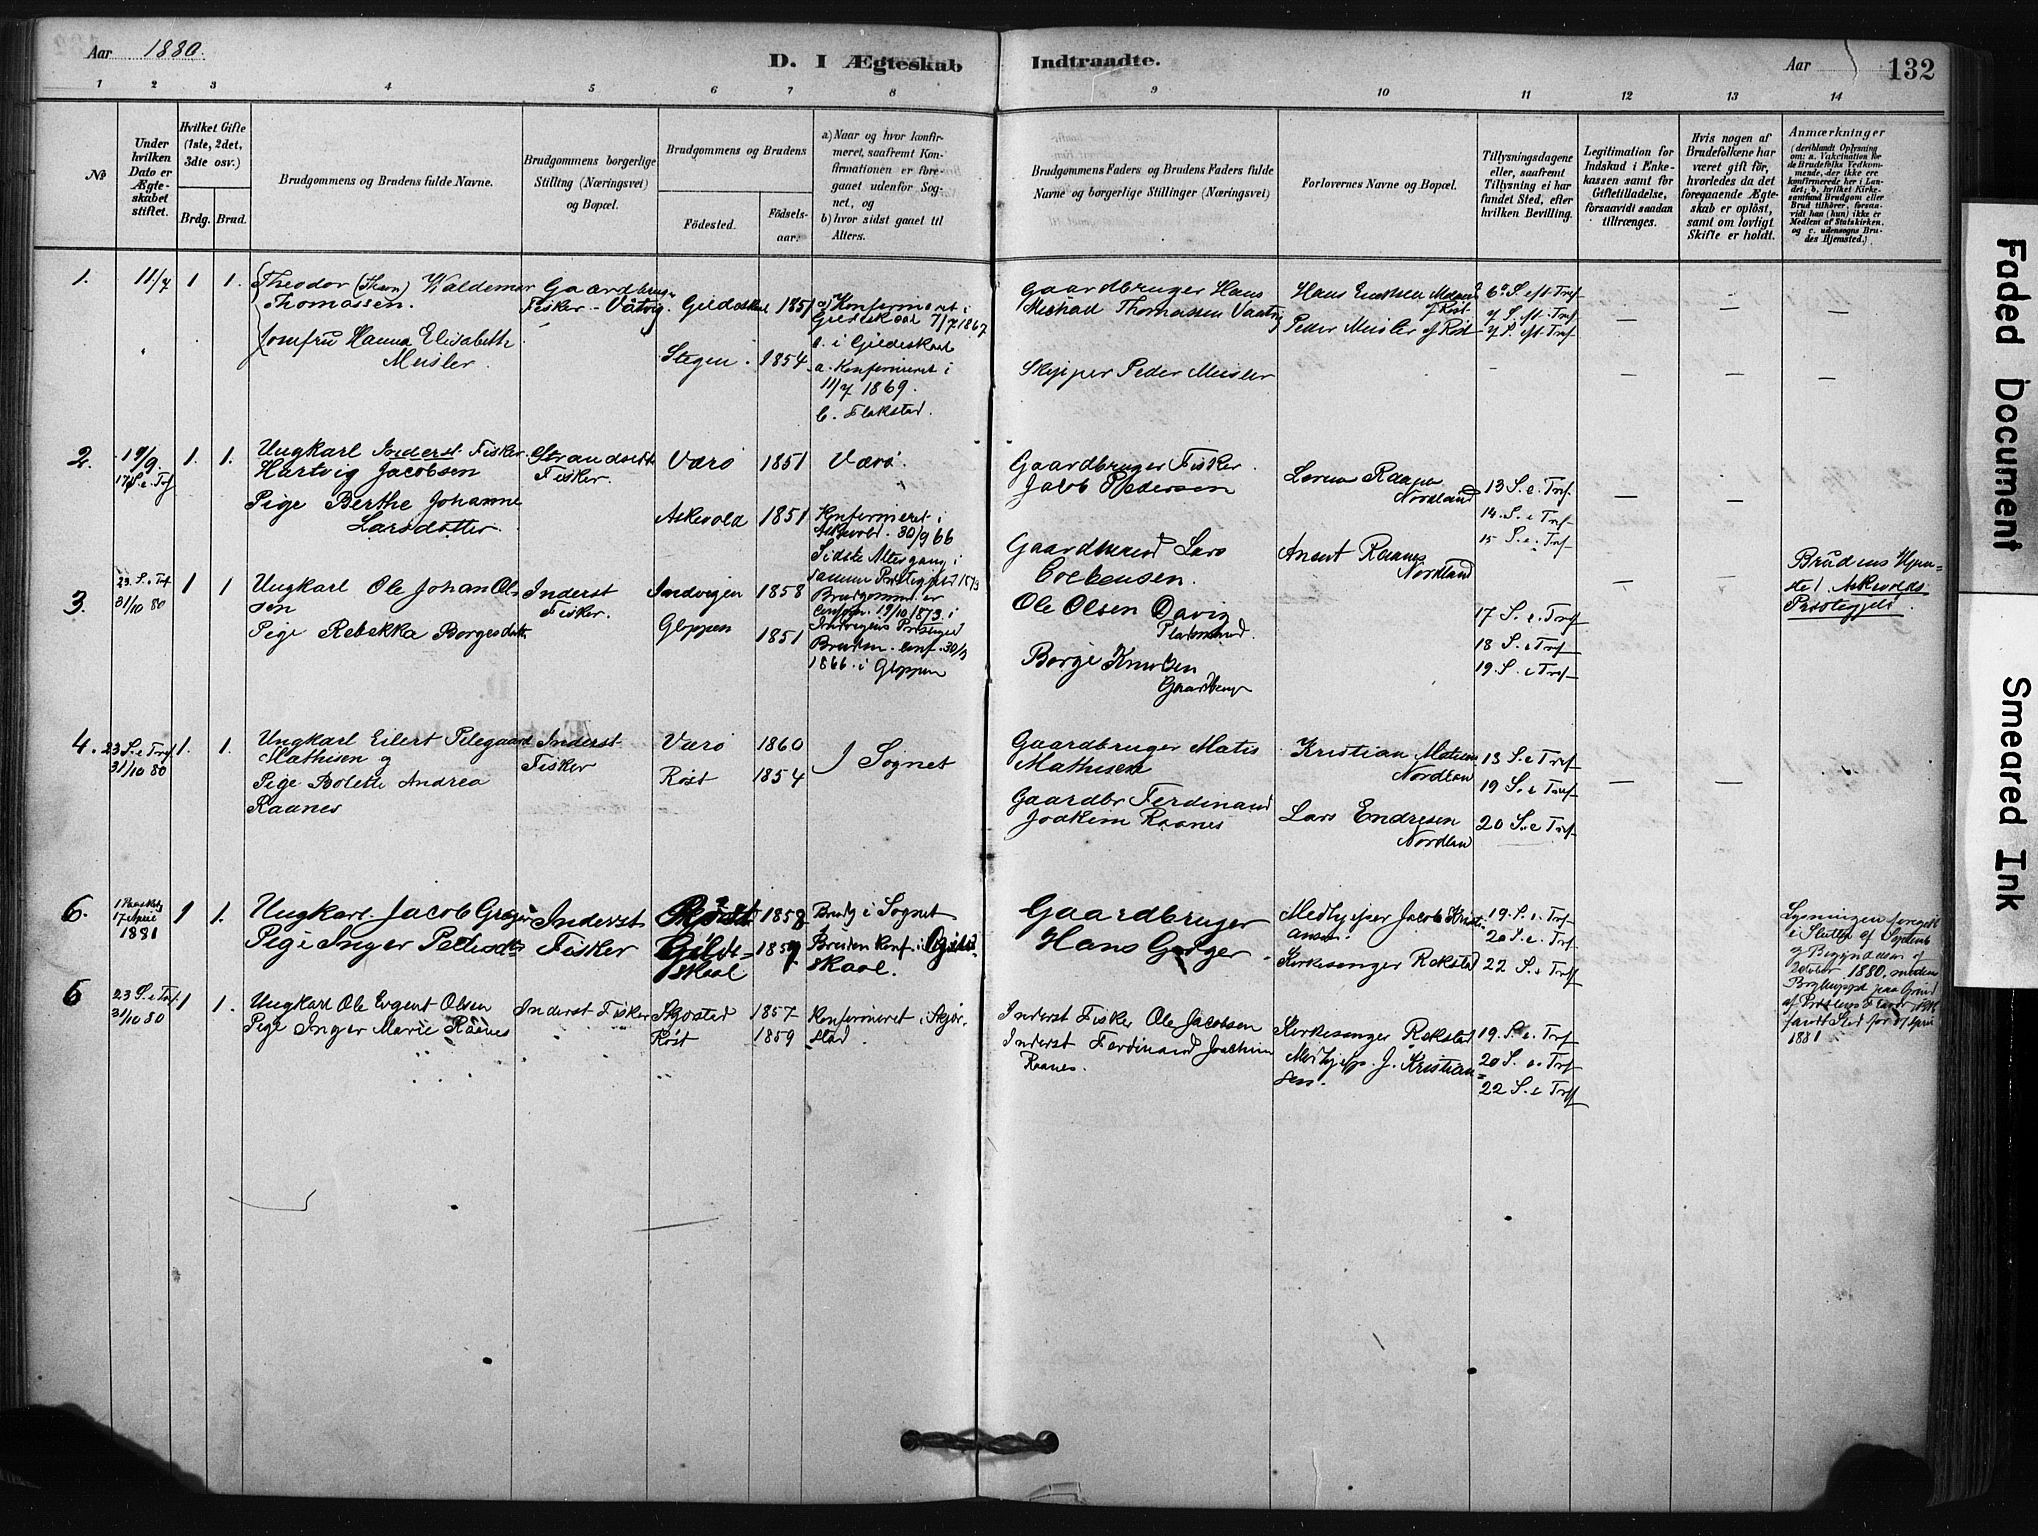 Aar 1880.
D. I Ægteskab Indtraadte.
Aar
132
1 2 3 4 5 6 7 8 9 10 11 12 13 14
No
Under hvilken Dato er Ægteskabet stiftet.
Hvilket Gifte (1ste, 2det, 3die osv.)
Brdg. Brud.
Brudgommens og Brudens fulde Navne.
Brudgommens borgerlige Stilling (Næringsvei) og Bopæl.
Brudgommens og Brudens
Födested.
Födselsaar.
a) Naar og hvor konfirmeret, saafremt Konfirmationen er foregaaet udenfor Sognet, og
b) hvor sidst gaaet til Alters.
Brudgommens Faders og Brudens Faders fulde Navne og borgerlige Stillinger (Næringsvei)
Forlovernes Navne og Bopæl.
Tillysningsdagene eller, saafremt Tillysning ei har fundet Sted, efter hvilken Bevilling.
Legitimation for Indskud i Enkekassen samt for Giftetilladelse, forsaavidt saadan tiltrænges.
Hvis nogen af Brudefolkene har været gift för, hvorledes da det foregaaende Ægteskab er oplöst, samt om lovligt Skifte er holdt.
Anmærkninger
(deriblandt Oplysning om: a. Vakcination for de Brudefolks Vedkommende, der ikke ere konfirmerede her i Landet; b. hvilket Kirkesamfund Brudgom eller Brud tilhörer, forsaavidt han (hun) ikke er Medlem af Statskirken, og c. udensogns Brudes Hjemsted.)
1. 11/7 1 1.
Theodor (Thom) Waldemar Thomassen.
Jomfru Hanna Elisabeth Meisler.
Gaardbrug. Fisker - Våtvig
Gildeskaal 1851
Stegen. 1854
a. Konfirmeret i Gildeskaal 7/7 1867
b. i Gildeskaal
a. Konfirmeret i 11/7 1869.
b. Flakstad.
Gaardbruger Hans Michael Thomassen Vaatvig
Skipper Peder Meisler
Peder Meisler af Röst
6 S. eft. Tref
7 S. eft. Tref
2. 19/9 17 S. e. Trf 1. 1.
Ungkarl Inderst. Fisker Hartvig Jacobsen
Pige Berthe Johanne Larsdatter
Strandsidd. Fisker.
Værö 1851
Askevold 1851
Værö.
Konfirmeret i Askevold. 30/9 66
Sidste Altergang i samme Præstegjeld 1873
Gaardbruger Fisker. Jacob Pedersen
Gaardbruger Lars
Nordland
Anent Raanes Nordland
13 S. e. Trf.
14. S. e Trf
15 S. e. Trf
3. 23. S. e. Trf. 31/10 80 1 1
Ungkarl Ole Johan Olsen
Pige Rebekka Borgesdatt.
Inderst Fisker.
Indvigen 1858
Gloppen 1851
Brudgommen er confirm. 19/10 1873 i Indvigens Præstegjeld
Bruden conf. 30/9 1866. i Gloppen
Ole Olsen
Borge Knudsen Gaardbruger
17 S. e. Trf
18 S. e Trf
19. S. e Trf
Brudens Hjemsted. Askevolds Præstegjeld.
4. 23 S. e Trf. 31/10 80 1. 1.
Ungkarl Eilert Pilegaard Mathisen og
Pige Bolette Andrea Raanes
Inderst Fisker
Værö 1860
Röst 1854
I Sognet
Gaardbruger Matis Mathisen
Gaardbr Ferdinand Joakim Raanes
Kristian Nordland
Lars Endresen Nordland
18 S. e Tref
19 S. e Tref
20 S. e Tref
6. 17 April 1881 1 1.
Ungkarl. Jacob Greger
Pige Inger
Inderst Fisker
Röst 1858
Gildeskaal 1857
Brudg i Sognet
Bruden konf. i Gildeskaal.
Gaardbruger Hans Greger
Medhjelper Jacob Kristiansen.
Kirkesanger Rokstad
19. S. e. Trf
20 S. e. Trf
22 S. e Trf
Lysningen foregik i Slutten af Septemb og Begyndelsen af October 1880. medens
fandt Sted för 17 April 1881
6 23 S. e Trf. 31/10 80 1 1.
Ungkarl Ole Eugent Olsen
Pige Inger Marie Raanes
Inderst Fisker
Skjerstad 1857
Röst 1859
Konfirmeret i Skjerstad.
Inderst Fisker Ole Jacobsen
Inderst Ferdinand Joachim Raanes.
Kirkesanger Rokstad
Medhjelp. J. Kristiansen.
19 S. e. Trf
20 S. e. Trf
22 S. e Trf
Faded Document
Smeared Ink